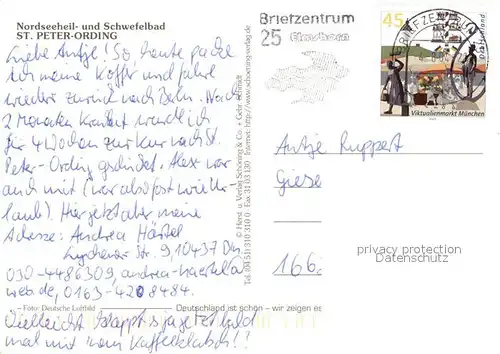 Nordseeheil- und Schwefelbad
ST. PETER-ORDING
Liebe Antje! So, heute packe
ich meine Koffer und fahre
wieder zurück nach Bln. Nach
2 Monaten Krankheit wurde ich
für 4 Wochen zur Kur nach St.
Peter-Ording geschickt. Alex war
auch mit (war also fast wie Ur-
laub). Hier jetzt aber meine
Adresse: Andrea Härtel
Lychener Str. 9, 10437 Bln.
030-4486309, andrea-haertel@
web.de, 0163-4208484.
Foto: Deutsche Luftbild
Deutschland ist schön – wir zeigen es
Vielleicht klappt's ja jetzt bald
mal mit 'nem Kaffeeklatsch!?
© Herst. u. Verlag Schöning & Co. + Gebr. Schmidt
Tel. (04 51) 310 310 Fax 31 03 130 Internet: http://www.schoening-verlag.de
Briefzentrum
25 Elmshorn
45
BRIEFZENTRUM
Deutschland
Viktualienmarkt München
Antje Ruppert
Giese
166
privacy protection
Datenschutz